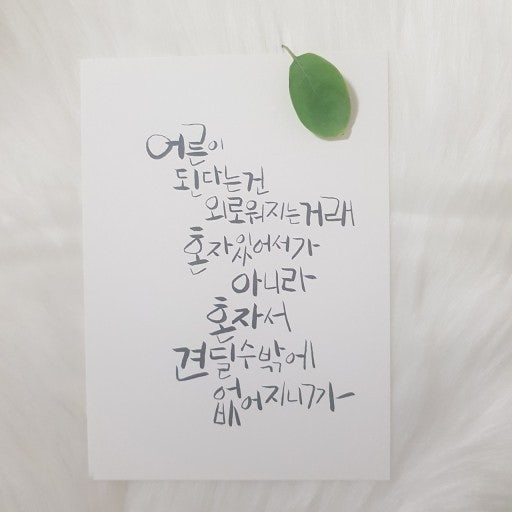 어른이
된다는건
외로워지는거래
혼자있어서가
아니라
혼자서
견딜수밖에
없어지니까